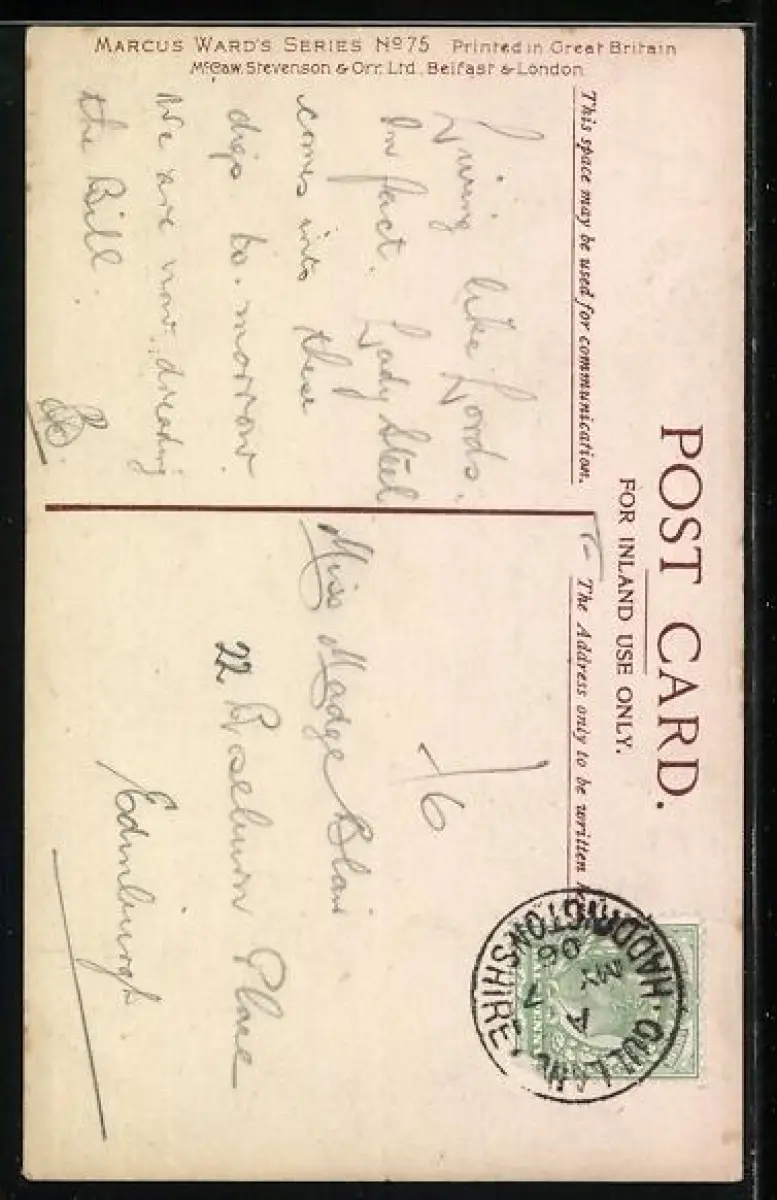 MARCUS WARD'S SERIES Nº 75 Printed in Great Britain
McCaw, Stevenson & Orr, Ltd., Belfast & London
POST CARD.
FOR INLAND USE ONLY.
This space may be used for communication.
The Address only to be written
Living like Lords.
In fact. Lady Steel
comes into these
digs to-morrow.
We are now dreading
the Bill.
/6
Miss Madge Blair
22 Roseburn Place
Edinburgh
GULLANE HADDINGTONSHIRE
A
7
MY
06